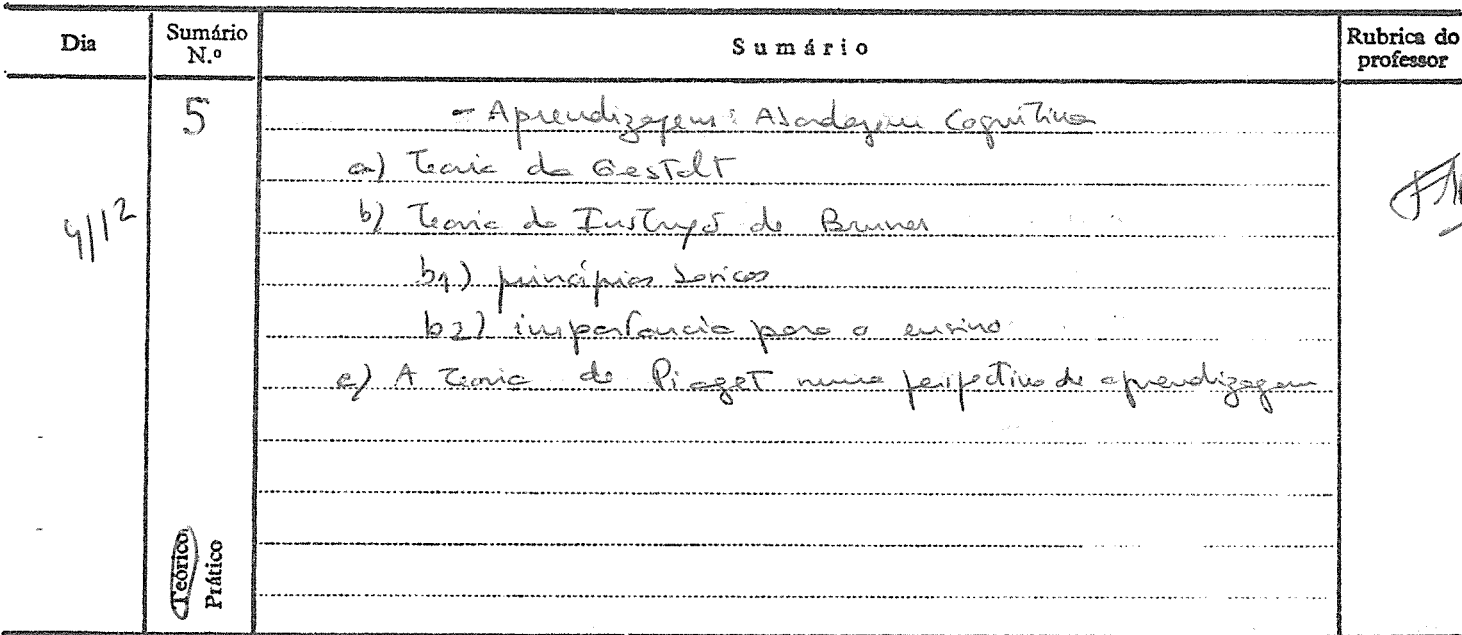 Dia
Sumário N.º
Sumário
Rubrica do professor
5
- Aprendizagem: Abordagem Cognitiva
a) Teoria da Gestalt
4/12
b) Teoria da Instrução de Bruner
b1) princípios básicos
b2) importancia para o ensino
c) A Teoria de Piaget numa perspectiva de aprendizagem
Teórico
Prático